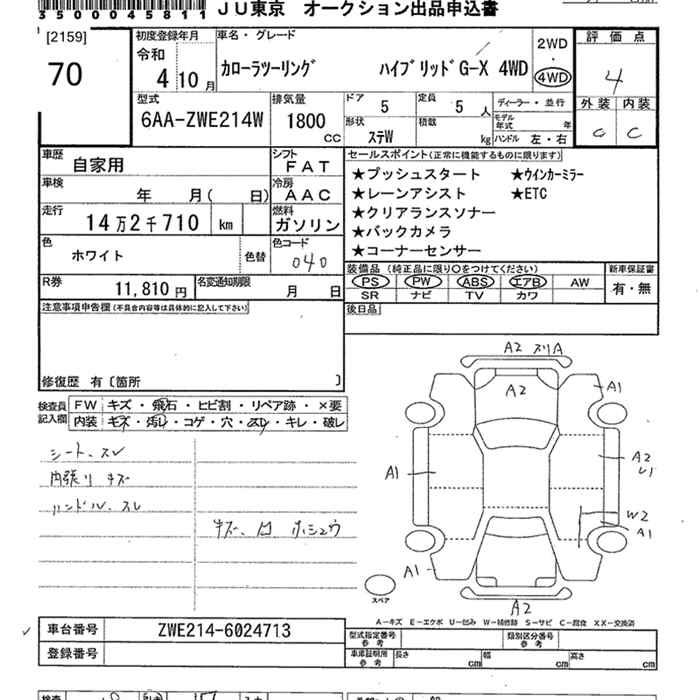 35004581１
JU東京 オークション出品申込書
[2159]
70
初度登録年月
令和
4 10月
車名・グレード
カローラツーリング ハイブリッドG-X 4WD
2WD
・
4WD
評価点
4
外装 内装
C C
型式
6AA-ZWE214W
排気量
1800
CC
ドア
5
定員
5 人
ディーラー・並行
形状
ステW
積載
kg
モデル年式 年
ハンドル 左・右
車歴
自家用
シフト
FAT
車検
年 月( 日)
冷房
AAC
走行
14万2千710 km
燃料
ガソリン
色
ホワイト
色替
色コード
040
R券
11,810円
名変通知期限
月 日
セールスポイント(正常に機能するものに限ります)
★プッシュスタート ★ウインカーミラー
★レーンアシスト ★ETC
★クリアランスソナー
★バックカメラ
★コーナーセンサー
装備品(純正品に限り○をつけてください)
PS PW ABS エアB AW
SR ナビ TV カワ
新車保証書
有・無
後日品
注意事項申告欄(不具合内容等は具体的に記入して下さい)
修復歴 有〔箇所 〕
検査員記入欄
FW キズ・飛石・ヒビ割・リペア跡・×要
内装 キズ・汚レ・コゲ・穴・スレ・キレ・破レ
シート、スレ
内張り キズ
ハンドル、スレ
キズ、凹 ホシュウ
A2 スリA
A2
A1
A1
A2
U1
W2
A1
A1
A2
スペア
A-キズ E-エクボ U-凹み W-補修跡 S-サビ C-腐食 XX-交換済
車台番号 ZWE214-6024713
登録番号
型式指定番号
参考
類別区分番号
参考
車庫証明用
参考
長さ cm 幅 cm 高さ cm